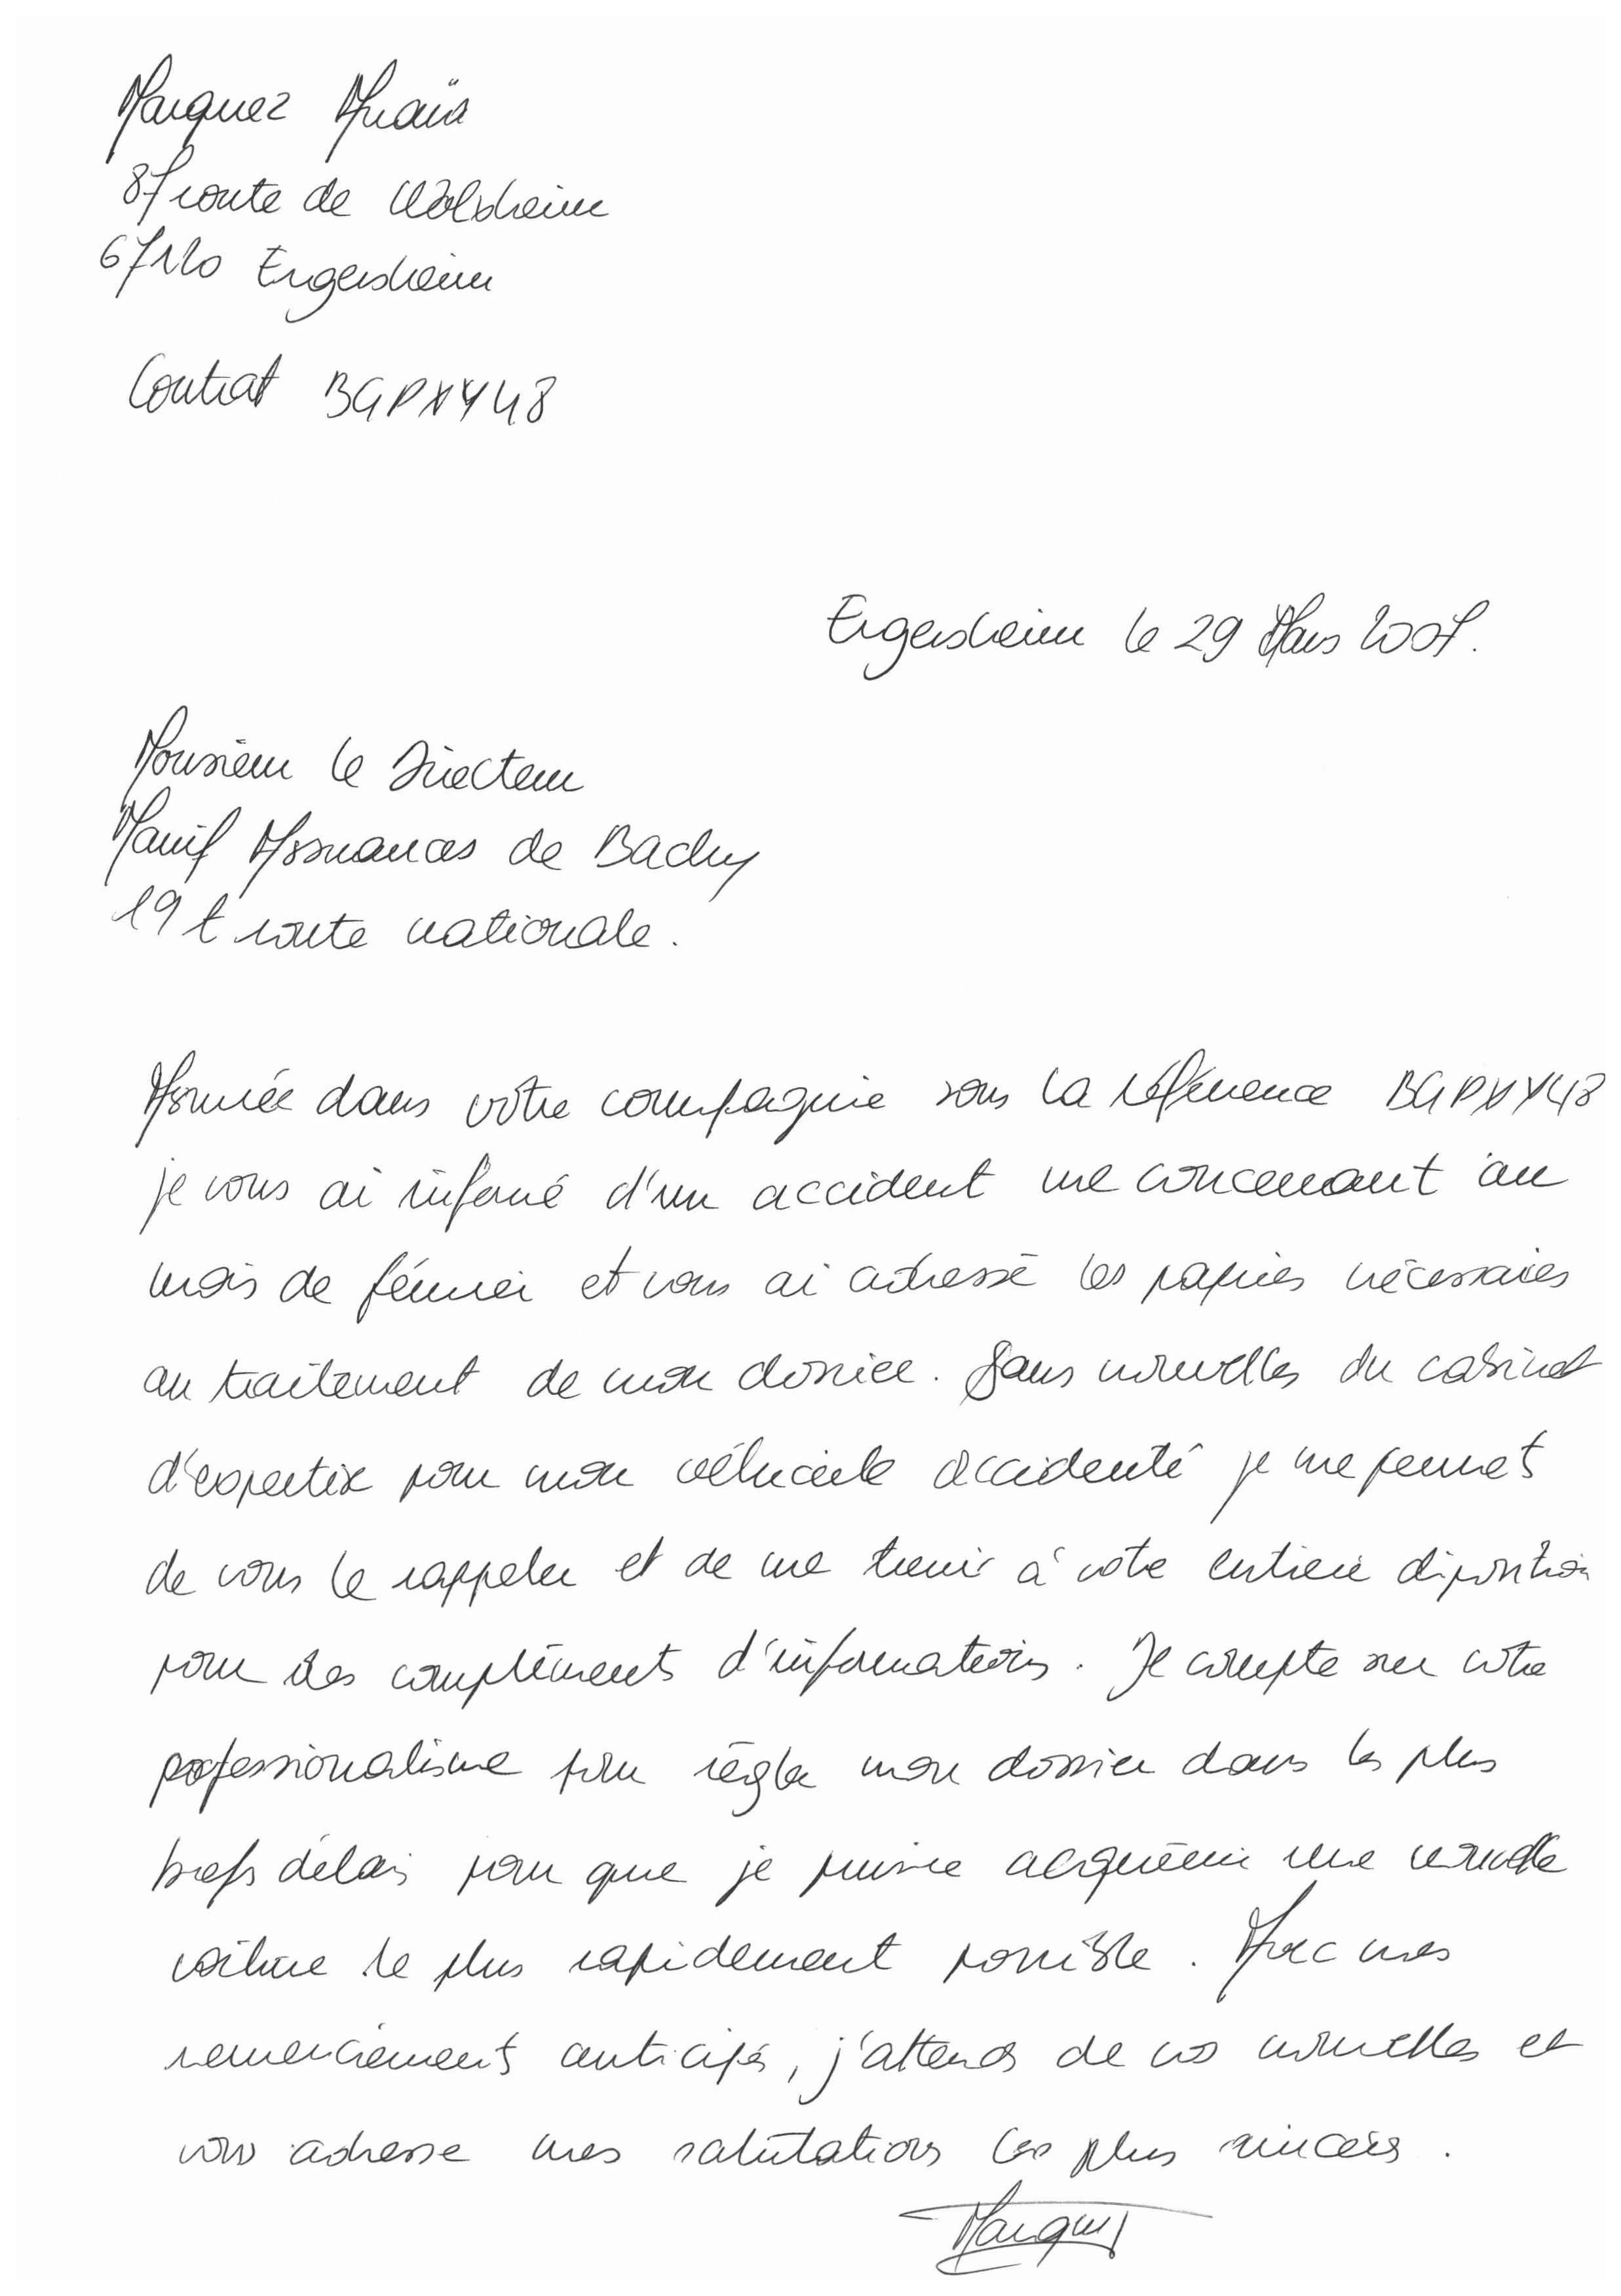 Marquez Anaïs
87 route de Wolxheim
67120 Ergersheim
Contrat BGPXY48
Ergersheim le 29 Mars 2007.
Monsieur le Directeur
Manif Assurances de Bachy
19 t route nationale.
Assurée dans votre compagnie sous la référence BGPXY48
je vous ai informé d'un accident me concernant au
mois de février et vous ai adressé les papiers nécessaires
au traitement de mon dossier. Sans nouvelles du cabinet
d'expertise pour mon véhicule accidenté je me permet
de vous le rappeler et de me tenir à votre entière disposition
pour des compléments d'informations. Je compte sur votre
professionalisme pour régler mon dossier dans les plus
brefs délais pour que je puisse acquérir une nouvelle
voiture le plus rapidement possible. Avec mes
remerciements anticipés, j'attends de vos nouvelles et
vous adresse mes salutations les plus sincères.
Marquez